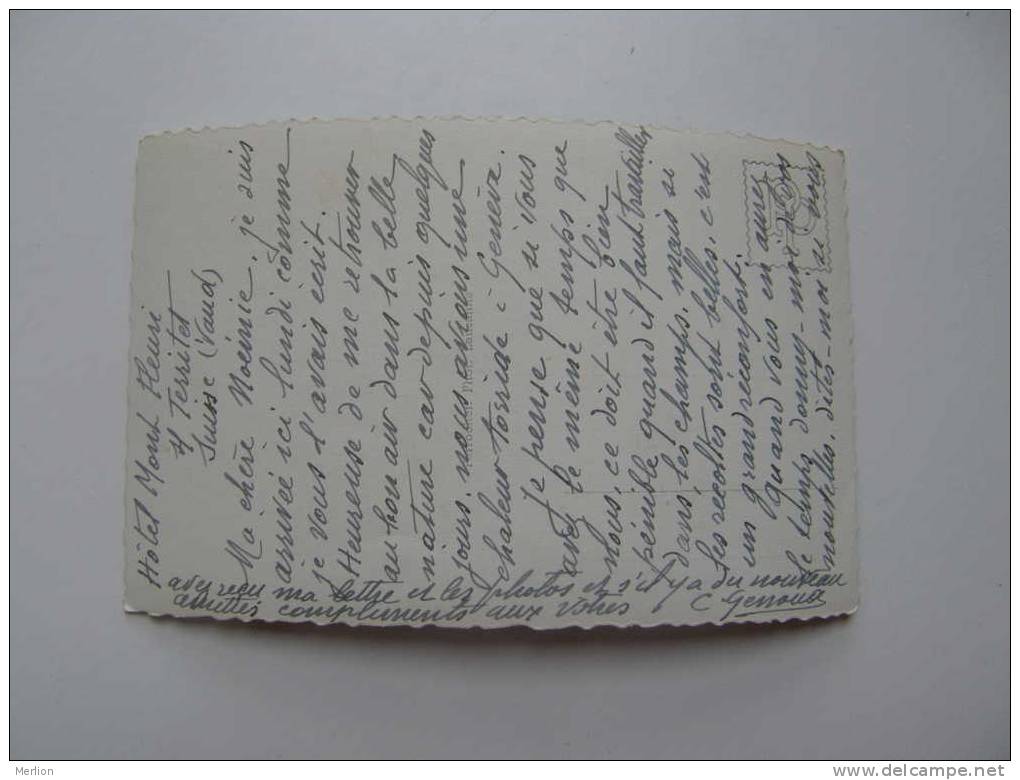 Hôtel Mont Fleuri
s/ Territet
Suisse (Vaud)
Ma chère Noémie, je suis
arrivée ici lundi comme
je vous l'avais écrit.
Heureuse de me retrouver
au bon air dans la belle
nature car depuis quelques
jours, nous avions une
chaleur torride à Genève.
Je pense que si vous
avez le même temps que
nous, ce doit être bien
pénible quand il faut travailler
dans les champs, mais si
les récoltes sont belles, c'est
un grand réconfort.
Quand vous en aurez
le temps donnez-moi de vos
nouvelles, dites-moi si vous
avez reçu ma lettre et les photos et s'il y a du nouveau
amitiés compliments aux vôtres C Genoud
Merlion
delcampe.net